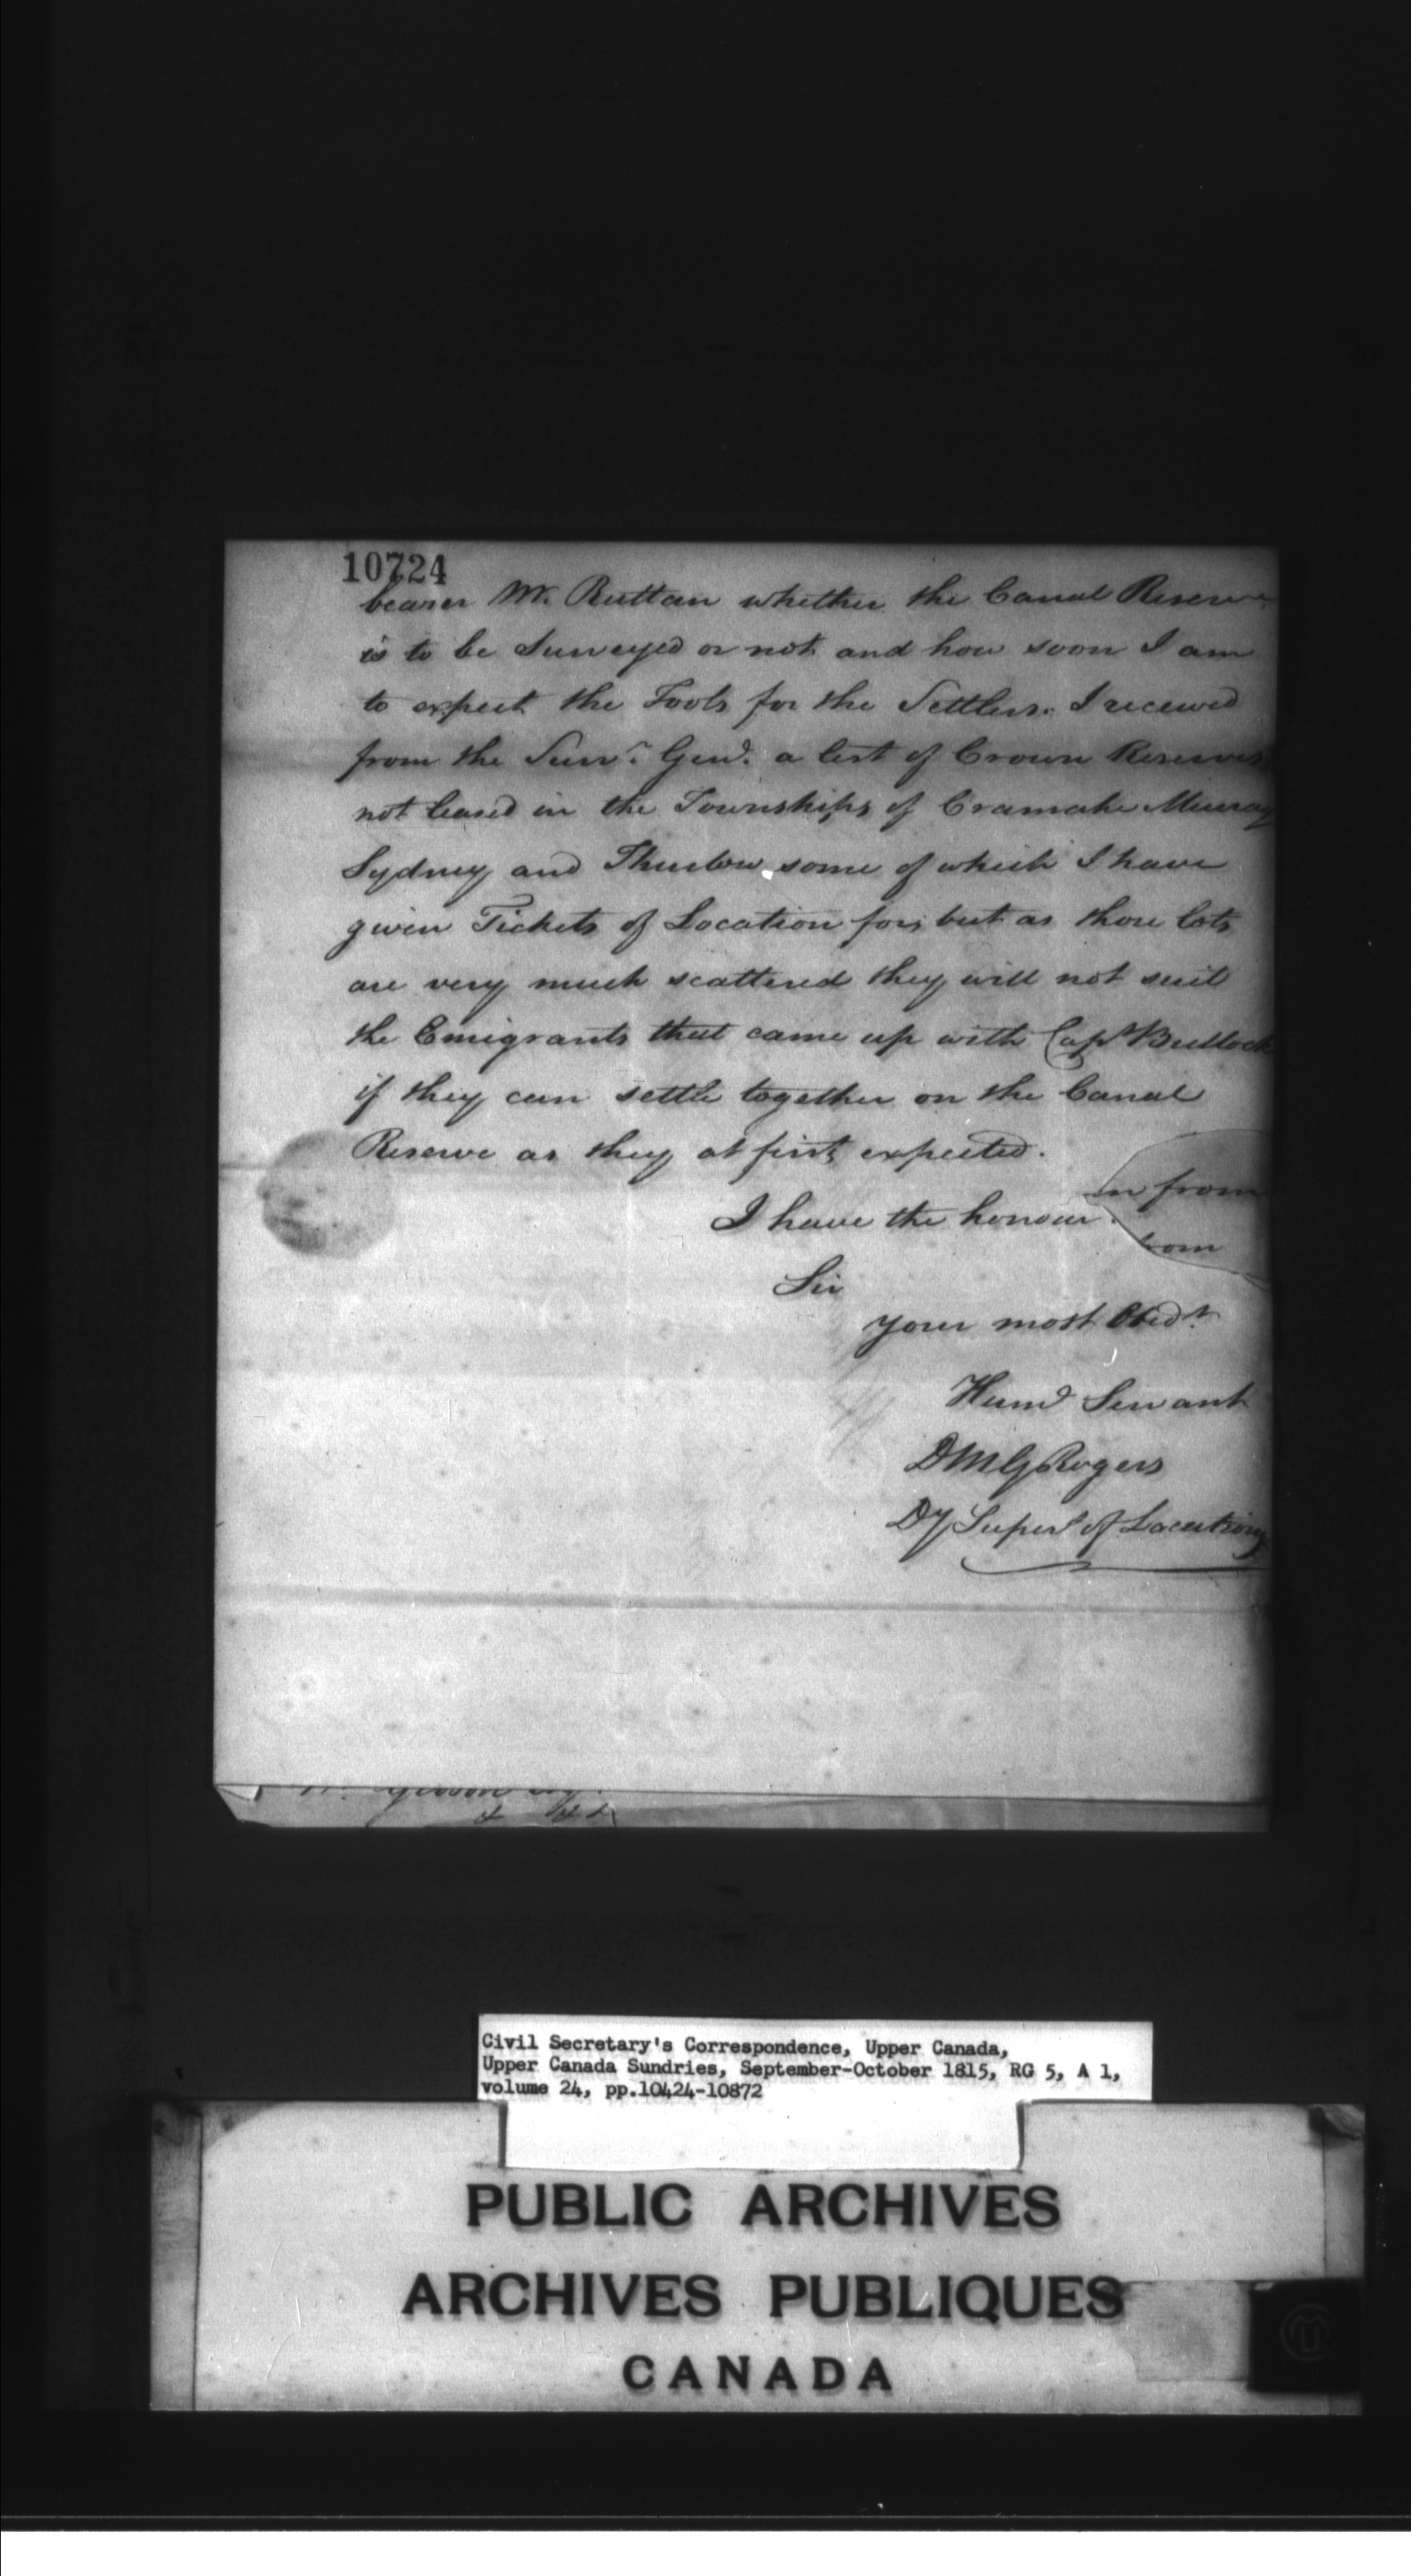 10724
bearer Mr. Ruttan whether the Canal Reserve
is to be Surveyed or not and how soon I am
to expect the Tools for the Settlers. I received
from the Survr. Genl. a list of Crown Reserves
not leased in the Townships of Cramahe Murray
Sydney and Thurlow some of which I have
given Tickets of Location for, but as those lots
are very much scattered they will not suit
the Emigrants that came up with Capt Bullock
if they can settle together on the Canal
Reserve as they at first expected.
from
I have the honour
Sir
your most Obedt
Huml Servant
DMG Rogers
Dy Supert of Locations
Civil Secretary's Correspondence, Upper Canada,
Upper Canada Sundries, September-October 1815, RG 5, A 1,
volume 24, pp.10424-10872
PUBLIC ARCHIVES
ARCHIVES PUBLIQUES
CANADA